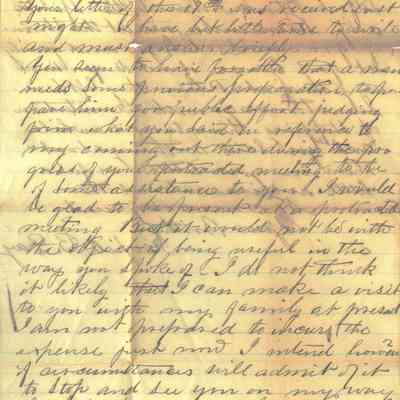 Your letter of the 8th was received last
night. I have but little time to write
and must answer briefly.
You seem to have forgotten that a man
needs some previous preparation, to pre
pare him for public effort, judging
from what you said in reference to
my coming out there during the pro
gress of your protracted meeting to be
of some assistance to you. I would
be glad to be present at a protracted
meeting But it would not be with
the object of being useful in the
way you spoke of. I do not think
it likely that I can make a visit
to you with my family at present
I am not prepared to incur the
expense just now I intend however
if circumstances will admit of it
to stop and see you on my way